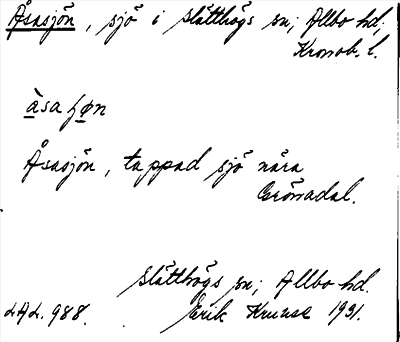 Åsasjön, sjö i Slätthögs sn; Allbo hd;
Kronob. l.
àsaʃøn
Åsasjön, tappad sjö nära
Grönadal.
Slätthögs sn; Allbo hd.
LAL. 988. Erik Kruuse 1931.